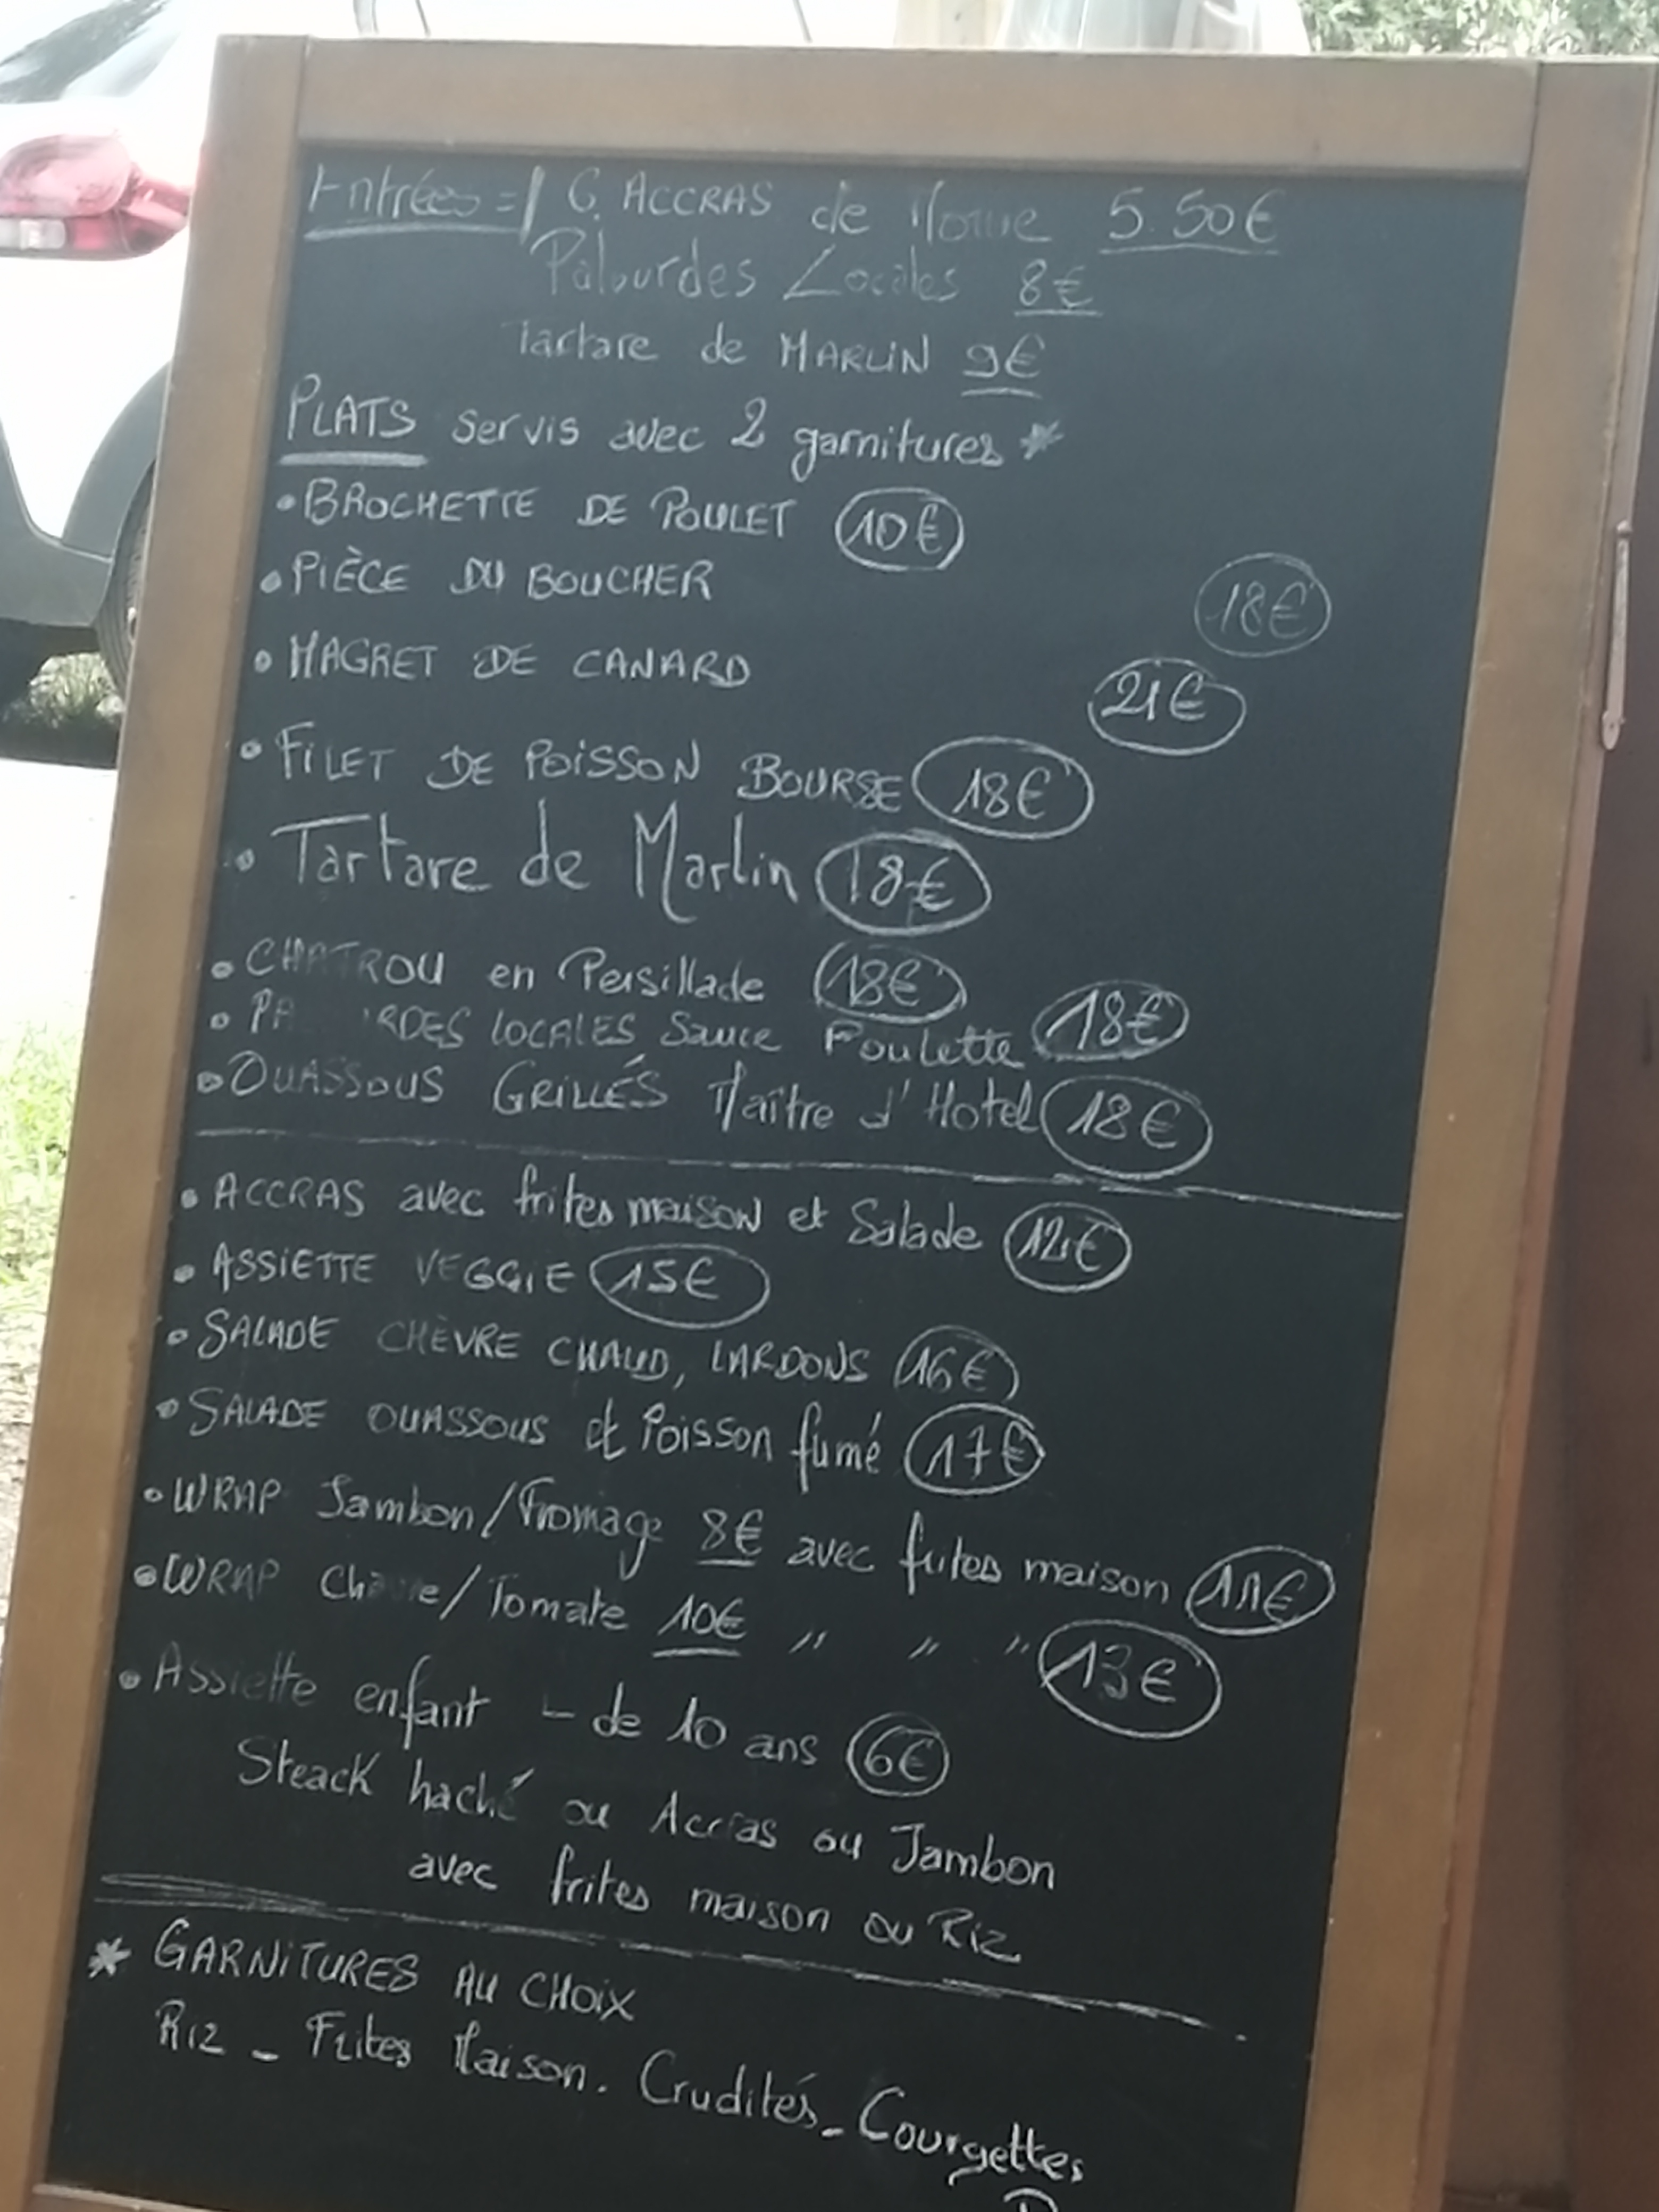 Entrées = 6 ACCRAS de Morue 5.50€
Palourdes Locales 8€
Tartare de MARLIN 9€
PLATS servis avec 2 garnitures *
• BROCHETTE DE POULET 10€
• PIÈCE DU BOUCHER 18€
• MAGRET DE CANARD 21€
• FILET DE POISSON BOURSE 18€
• Tartare de Marlin 18€
• CHATROU en Persillade 18€
• LOCALES Sauce Poulette 18€
• OUASSOUS GRILLÉS Maître d'Hotel 18€
• ACCRAS avec frites maison et Salade 12€
• ASSIETTE VEGGIE 15€
• SALADE CHÈVRE CHAUD, LARDONS 16€
• SALADE OUASSOUS et Poisson fumé 17€
• WRAP Jambon/Fromage 8€ avec frites maison 11€
• WRAP /Tomate 10€ " " " 13€
• Assiette enfant - de 10 ans 6€
Steack haché ou Accras ou Jambon
avec frites maison ou Riz
* GARNITURES AU CHOIX
Riz - Frites Maison. Crudités - Courgettes